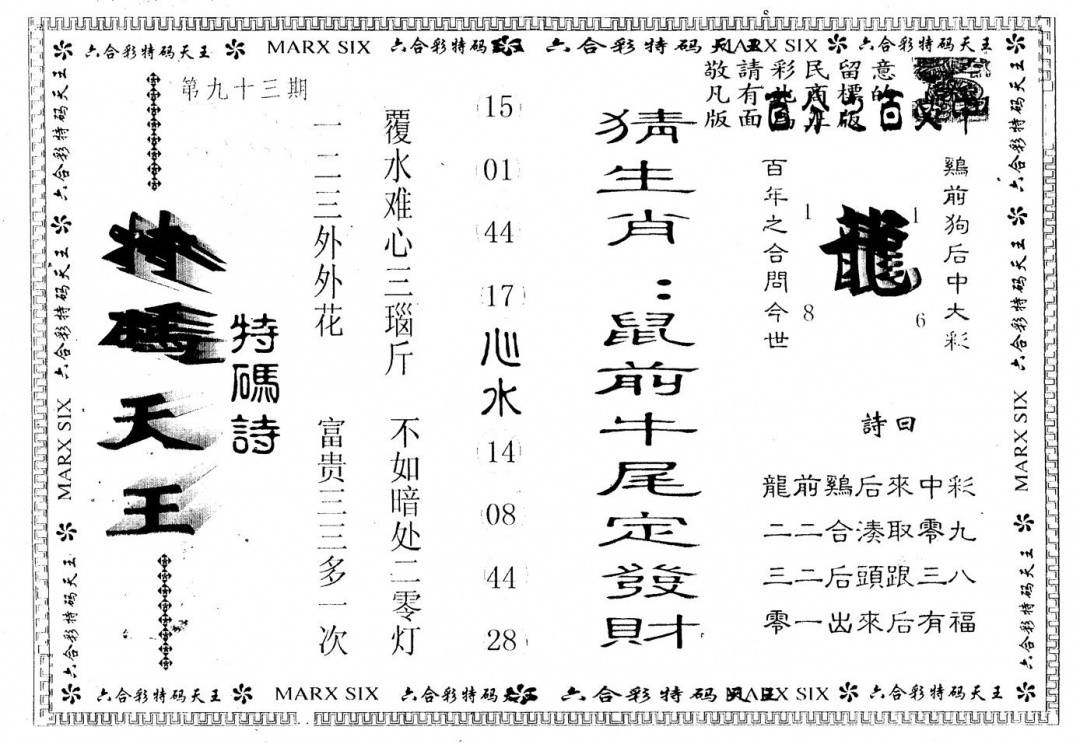 六合彩特码天王 MARX SIX 六合彩特码 六合彩特码 MARX SIX 六合彩特码天王
敬請彩民留意
凡有
版面
鷄前狗后中大彩
龍
1
1
8
6
百年之合問今世
詩曰
龍前鷄后來中彩
二二合湊取零九
三二后頭跟三八
零一出來后有福
猜生肖:鼠前牛尾定發財
15
01
44
17
心水
14
08
44
28
覆水难心三瑙斤 不如暗处二零灯
一二三外外花 富贵三三多一次
特碼詩
第九十三期
特碼天王
六合彩特码天王 MARX SIX 六合彩特码天王 六合彩特码天王
六合彩特码天王 六合彩特码天王 MARX SIX 六合彩特码天王
六合彩特码天王 MARX SIX 六合彩特码 六合彩特码 MARX SIX 六合彩特码天王